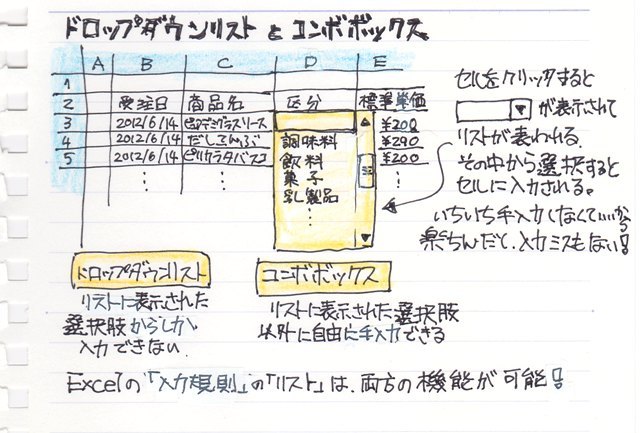 ドロップダウンリストとコンボボックス
A B C D E
1
2 受注日 商品名 区分 標準単価
3 2012/6/14 ¥200
4 2012/6/14 だしこんぶ 調味料 ¥290
5 2012/6/14 ピリカラタバスコ 飲料 ¥200
菓子
乳製品
セルをクリックすると
が表示されて
リストが表われる。
その中から選択すると
セルに入力される。
いちいち手入力しなくていいから
楽ちんだし、入力ミスもない!
ドロップダウンリスト
リストに表示された
選択肢からしか
入力できない
コンボボックス
リストに表示された選択肢
以外に自由に手入力できる
Excelの「入力規則」の「リスト」は、両方の機能が可能!